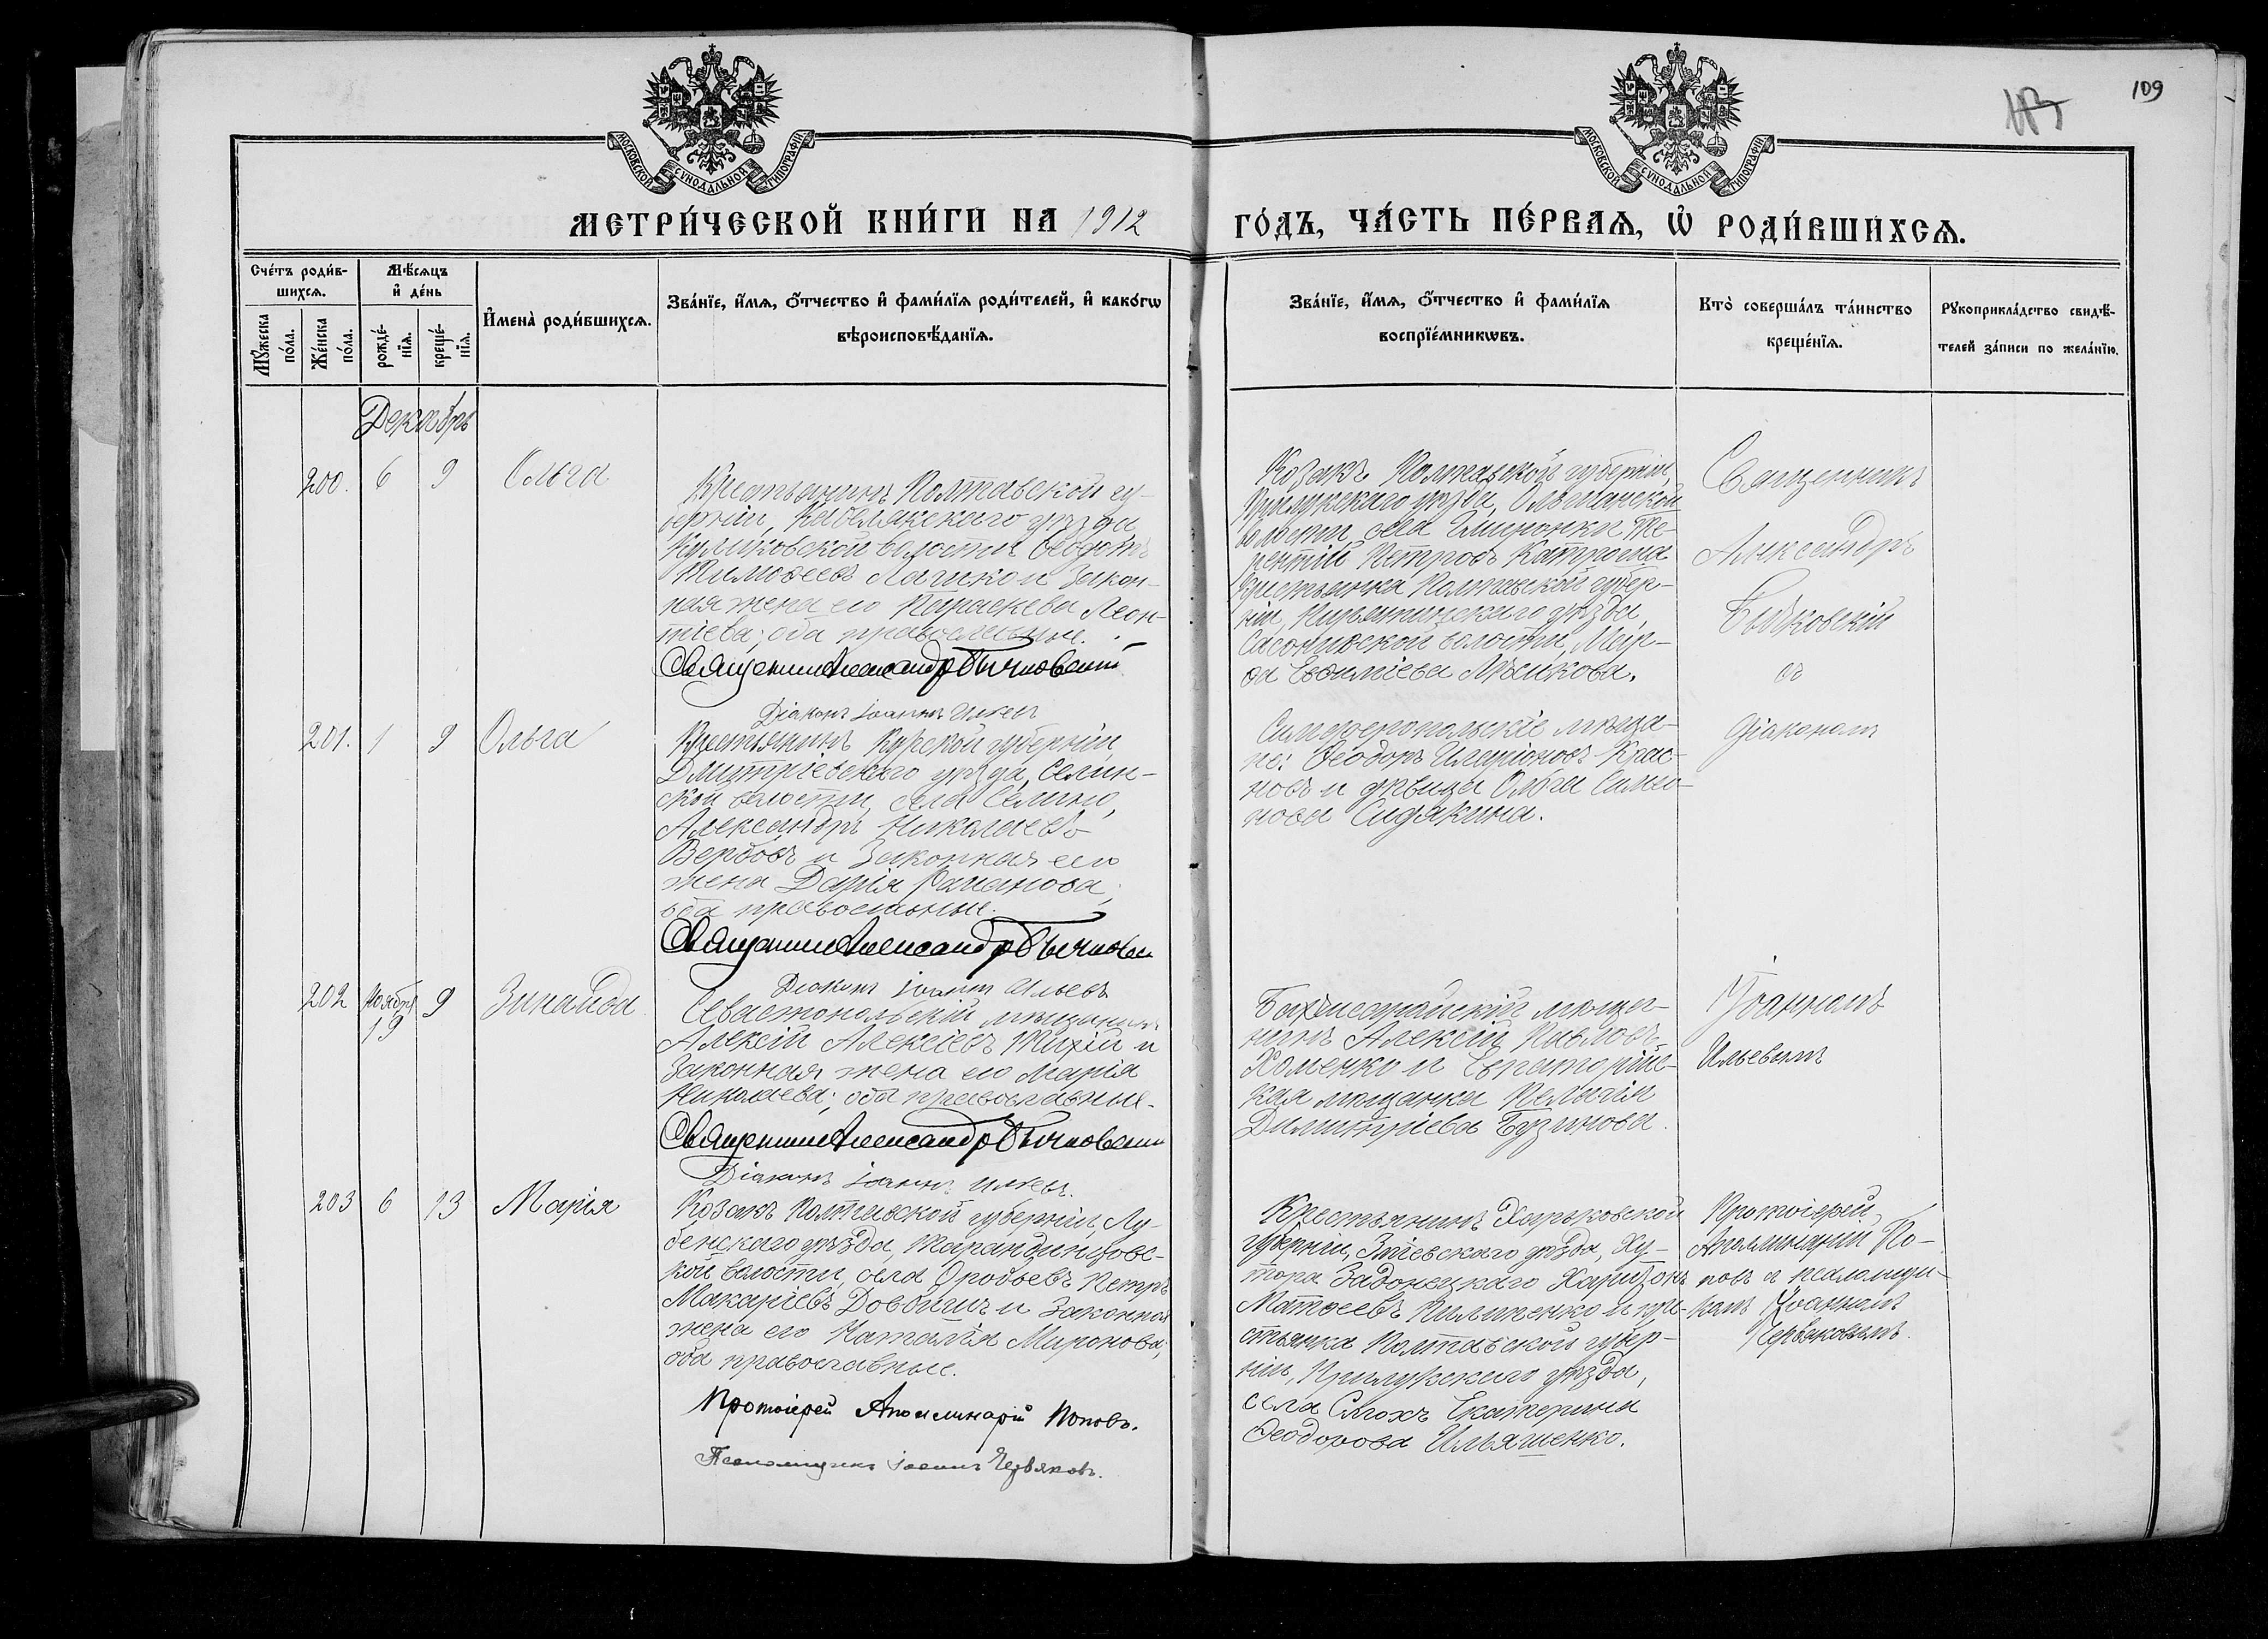 109
МОСКОВСКОЙ СѴНОДАЛЬНОЙ ТИПОГРАФІИ
МОСКОВСКОЙ СѴНОДАЛЬНОЙ ТИПОГРАФІИ
МЕТРИ́ЧЕСКОЙ КНИ́ГИ НА 1912
ГО́ДЪ, ЧА́СТЬ ПЕ́РВАѦ, Ѡ҆ РОДИ́ВШИХСѦ.
Сче́тъ роди́в-
шихсѧ.
Мꙋ́жеска по́ла.
Же́нска по́ла.
Мѣ́сѧцъ
и҆ де́нь
рожде́-
нїѧ.
креще́-
нїѧ.
И҆мена̀ роди́вшихсѧ.
Зва́нїе, и҆́мѧ, ѻ҆́тчество и҆ фами́лїѧ роди́телей, и҆ како́гѡ
вѣроисповѣ́данїѧ.
Зва́нїе, и҆́мѧ, ѻ҆́тчество и҆ фами́лїѧ
воспрїе́мникѡвъ.
Кто̀ соверша́лъ та́инство
креще́нїѧ.
Рꙋкоприкла́дство свидѣ́-
телей за́писи по жела́нїю.
Декабрь
200. 6 9 Ольга
Крестьянинъ Полтавской гу-
берніи, Кобелякскаго уѣзда
Куликовской волости Ѳеодотъ
Тимоѳеевъ Лашко и закон-
ная жена его Параскева Леон-
тіева; оба православные.
Священникъ Александръ Бычковскій
Діаконъ Іоаннъ Ильевъ
Козакъ Полтавской губерніи,
Прилукскаго уѣзда, Ольшанской
волости, села Те-
рентій Петровъ
крестьянка Полтавской губер-
ніи, Пирятинскаго уѣзда,
волости, Мар-
ѳа Евѳиміева
Священникъ
Александръ
Бычковскій
съ
діакономъ
201. 1 9 Ольга
Крестьянинъ Курской губерніи
Дмитріевскаго уѣзда, Селин-
ской волости, села Селино,
Александръ Николаевъ
Вербовъ и законная его
жена Дарія Романова;
оба православные.
Священникъ Александръ Бычковскій
Діаконъ Іоаннъ Ильевъ
Симферопольскіе мѣща-
не: Ѳеодоръ Иларіоновъ Крас-
новъ и дѣвица Ольга Симео-
нова Сидякина.
202 Ноября 19 9 Зинаида
Севастопольскій мѣщанинъ
Алексій Алексіевъ Тихій и
законная жена его Марія
Николаева; оба православные.
Священникъ Александръ Бычковскій
Діаконъ Іоаннъ Ильевъ.
Бахчисарайскій мѣща-
нинъ Алексій Павловъ
Хоменко и Евпаторій-
ская мѣщанка Пелагія
Димитріева Бузинова.
Іоанномъ
Ильевымъ
203 6 13 Марія
Козакъ Полтавской губерніи, Лу-
бенскаго уѣзда, Тарандинцовс-
кой волости, села Петръ
Макаріевъ Довбышъ и законная
жена его Наталія Миронова;
оба православные.
Протоіерей Аполлинарій Поповъ.
Псаломщикъ Іоаннъ Червяковъ.
Крестьянинъ Харьковской
губерніи, Зміевскаго уѣзда, ху-
тора Задонецкаго Харитонъ
Матѳеевъ Пилипенко и кре-
стьянка Полтавской губер-
ніи, Прилукскаго уѣзда,
села Екатерина
Ѳеодорова Ильяшенко.
Протоіерей
Аполлинарій По-
повъ и псаломщи-
комъ Іоанномъ
Червяковымъ.